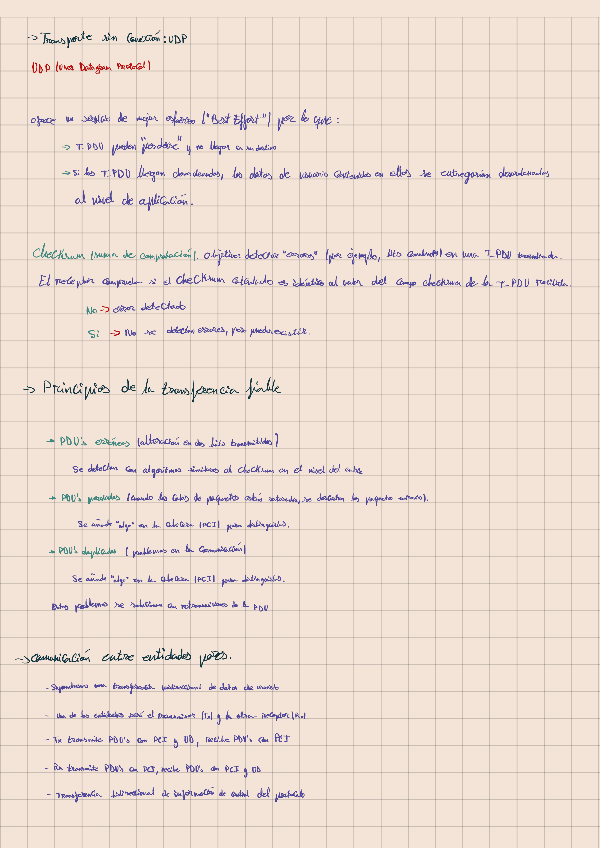 -> Transporte sin Conexión: UDP
UDP (User Datagram Protocol)
ofrece un servicio de mejor esfuerzo ("Best Effort") por lo que:
-> T_PDU pueden "perderse" y no llegar a su destino
-> Si las T_PDU llegan desordenadas, los datos de usuario contenidos en ellos se entregarían desordenados
al nivel de aplicación.
Checksum (suma de comprobación). objetivo: detectar "errores" (por ejemplo, bits cambiados) en una T_PDU transmitida.
El receptor comprueba si el checksum calculado es idéntico al valor del campo checksum de la T_PDU recibida.
No -> error detectado
Si -> No se detectan errores, pero puede existir.
-> Principios de la transferencia fiable
-> PDU's erróneas (alteración en los bits transmitidos)
Se detectan con algoritmos similares al checksum en el nivel de
-> PDU's perdidas (cuando las colas de paquetes están saturadas, se descartan los paquetes
Se añade "algo" en la cabecera (PCI) para distinguirlos.
-> PDU's duplicadas (problemas en la comunicación)
Se añade "algo" en la cabecera (PCI) para distinguirlos.
Estos problemas se solucionan con retransmisiones de la PDU
-> Comunicación entre entidades pares.
- Supondremos una transferencia unidireccional de datos de usuario
- Una de las entidades será el transmisor (Tx) y la otra receptor (Rx)
- Tx transmite PDU's con PCI y UD, recibe PDU's con PCI
- Rx transmite PDU's con PCI, recibe PDU's con PCI y UD
- Transferencia bidireccional de información de control del protocolo